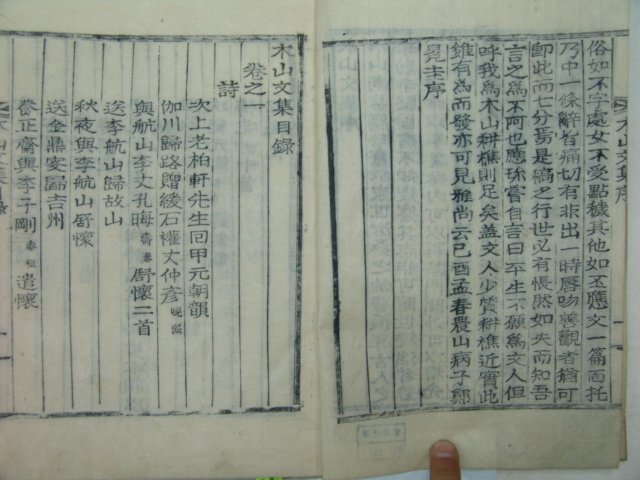 俗如不字處女不受點穢其他如玉應文一篇百托
乃中一條辭旨痛切有非出一時唇吻善觀者猶可
卽此而七分焉是稿之行世必有悵然如失而知吾
言之爲不阿也應孫嘗自言曰平生不願爲文人但
呼我爲木山耕樵則足矣盖文人少質耕樵近實此
雖有爲而發亦可見雅尚云己酉孟春農山病子鄭
冕圭序
木山文集序
木山文集目錄
卷之一
詩
次上老柏軒先生回甲元朝韻
伽川歸路贈綾石權丈仲彦
與航山李丈孔晦 壽泰 舒懷二首
送李航山歸故山
秋夜與李航山舒懷
送金鼎家歸吉州
養正齋與李子剛 遣懷